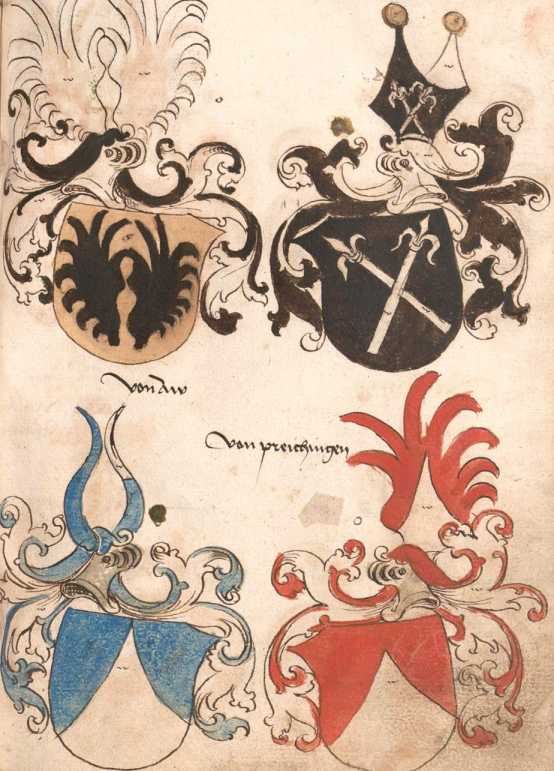 von Aw
von preichingen